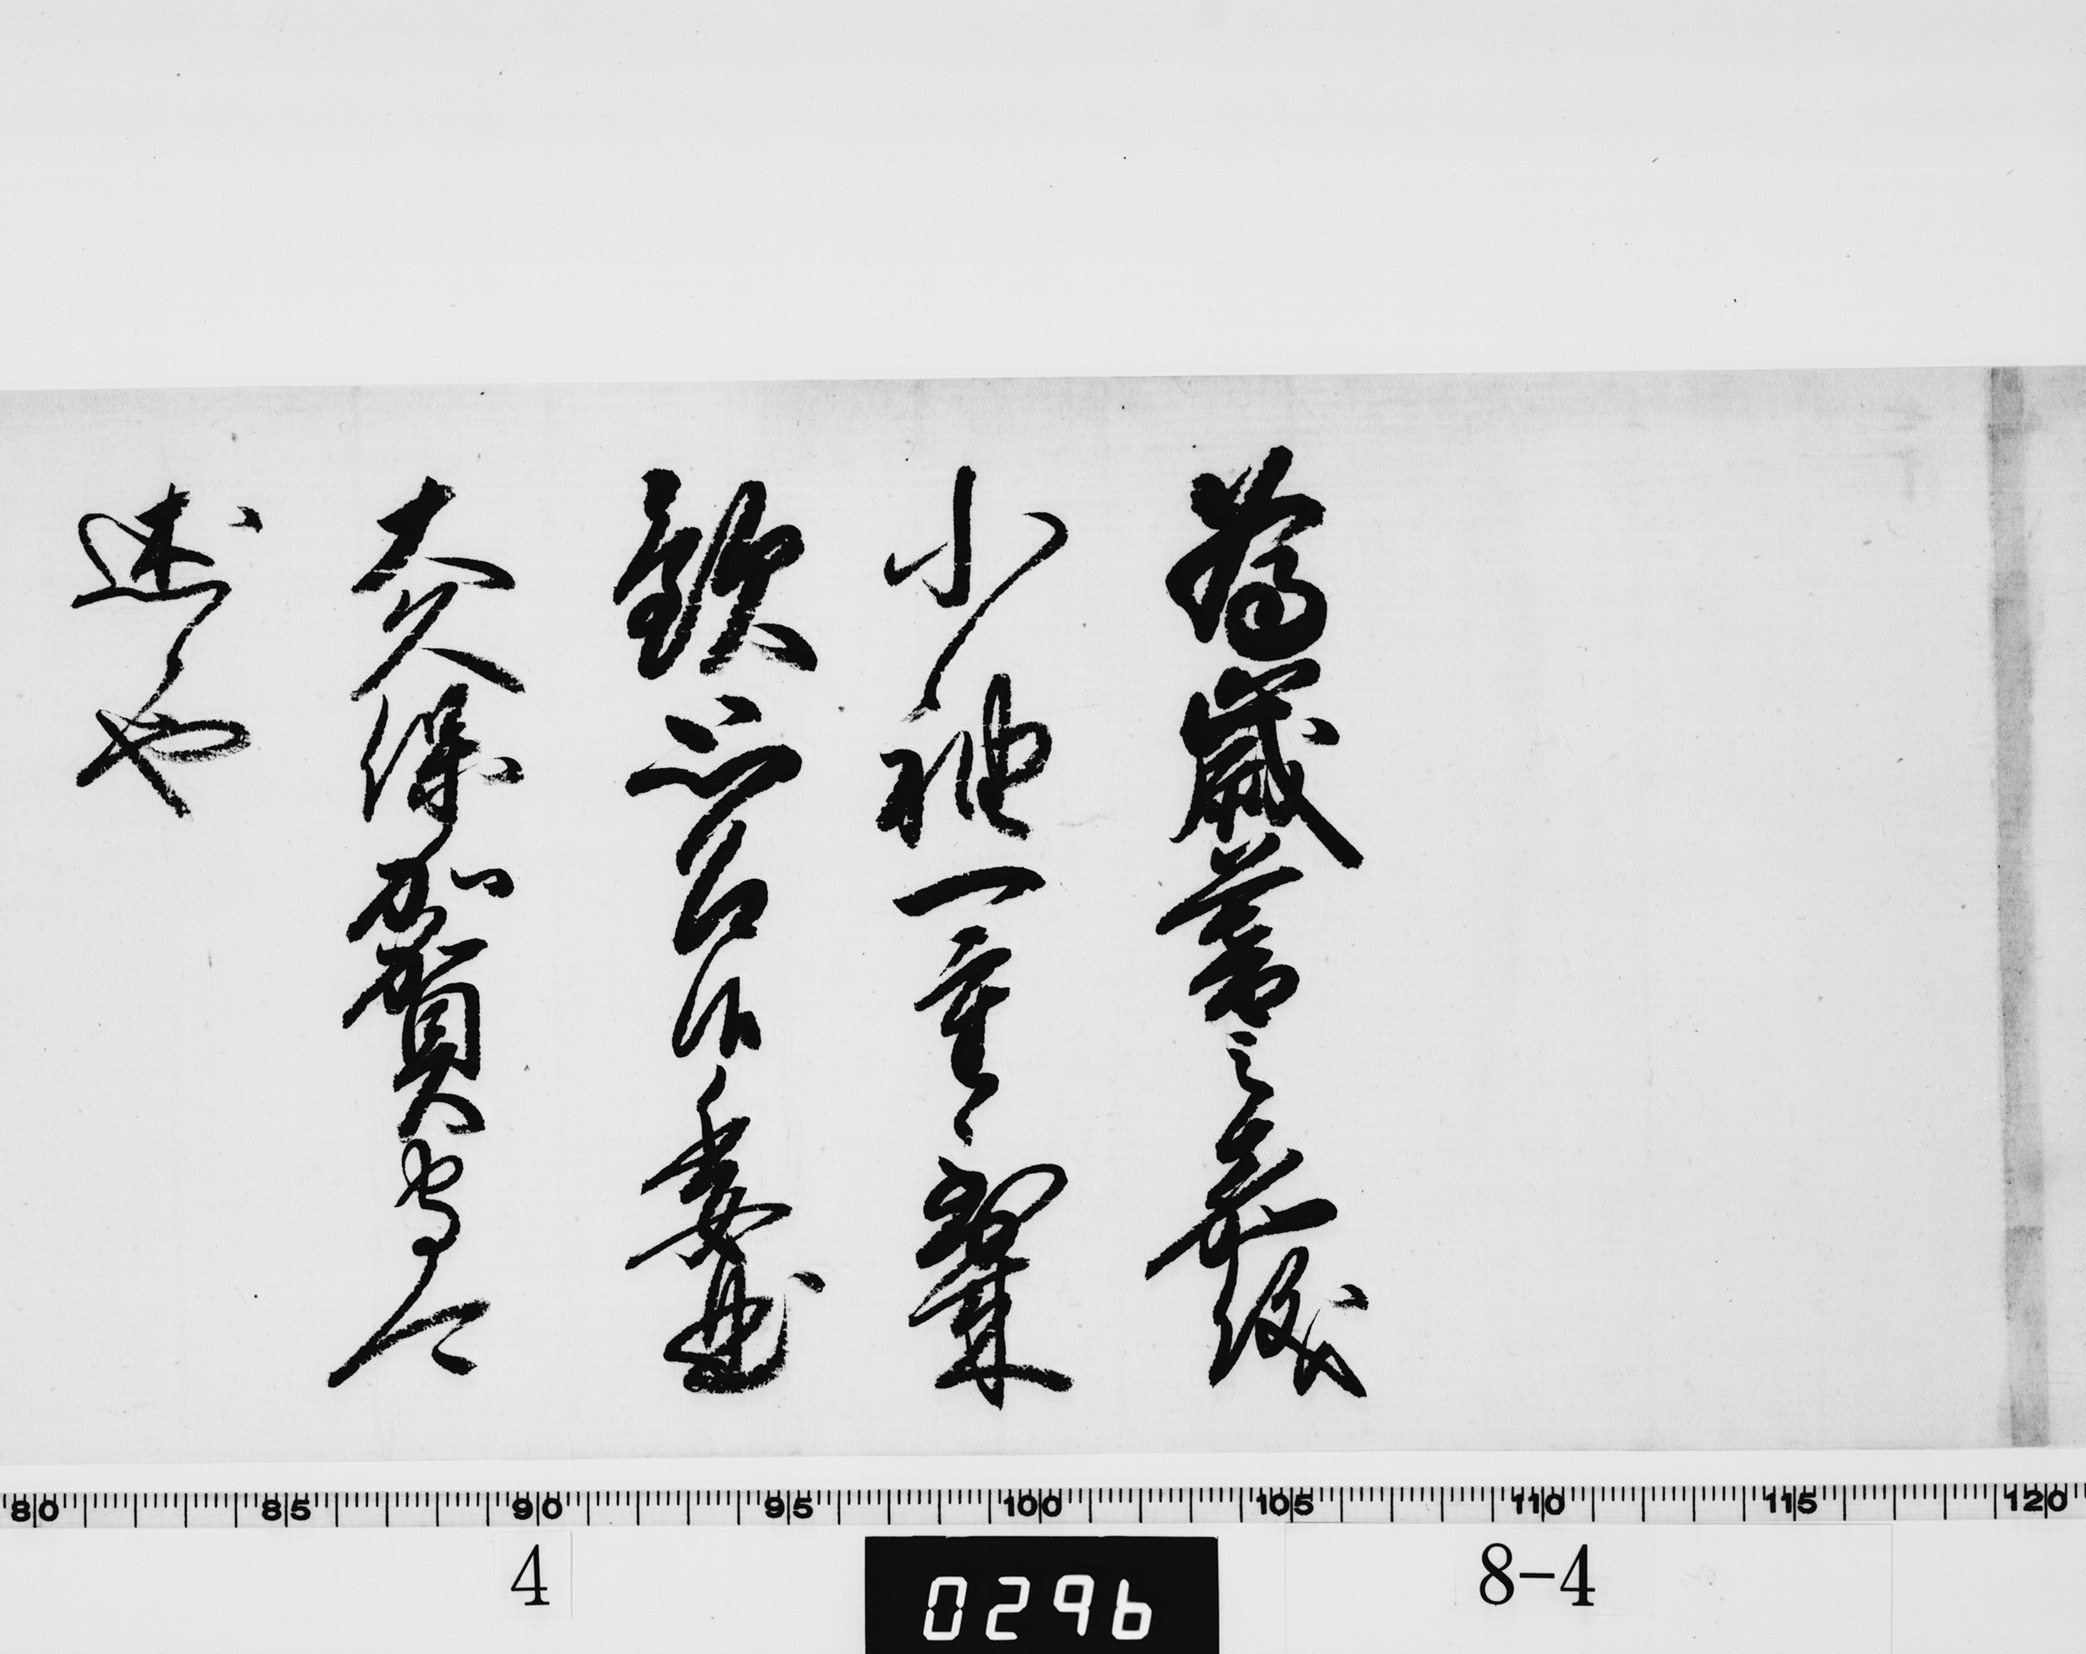 為歳暮之儀
小袖一重到来
歓思召候委曲
大久保加賀守可
述也
80 85 90 95 100 105 110 115 120
4 0296 8-4